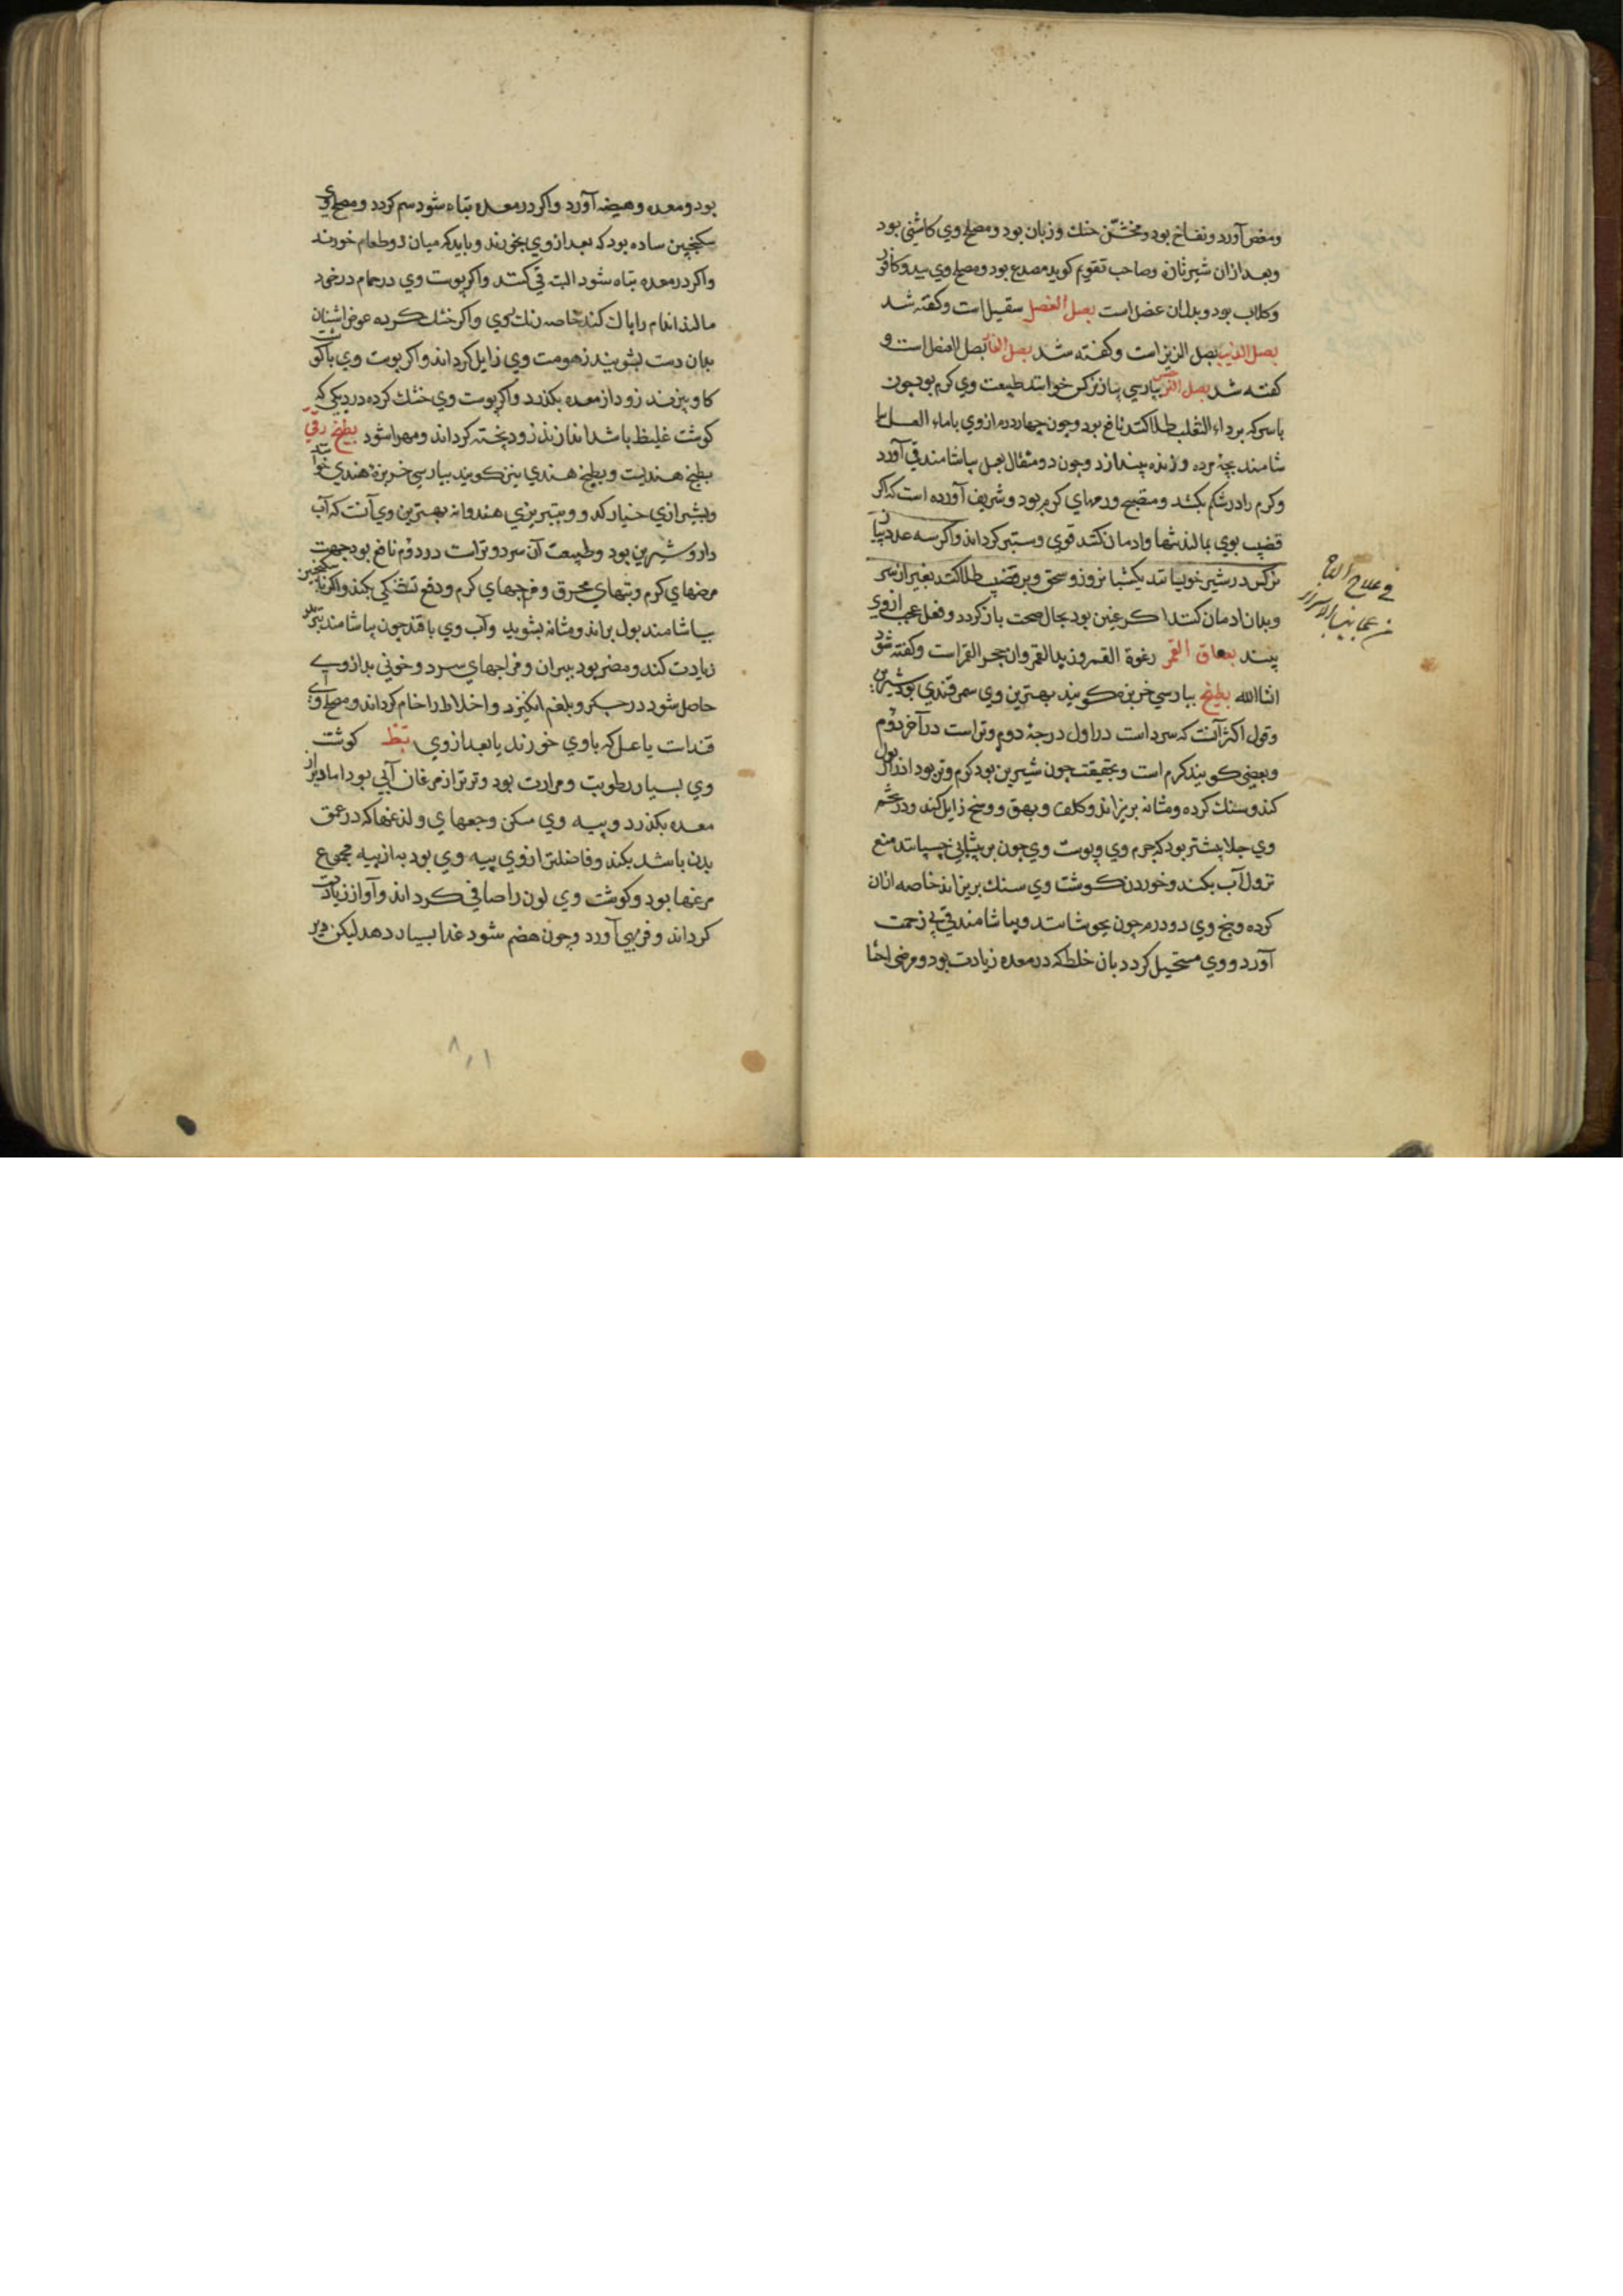 ومغص آورد ونفاخ بود ومخشّن حنك وزبان بود ومصلح وي كاشني بود
وبعد ازان شير تازه وصاحب تقويم كويد مصدع بود ومصلح وي بيد وكافور
وكلاب بود وبدل ان عنصل است بصل العنصل سقيل است وكفته شد
بصل الذيب بصل الزيز است وكفته شد بصل الفار بصل العنصل است و
كفته شد بصل النرجس بپارسي پياز نركس خوانند طبيعت وي كرم بود چون
باسركه برداء الثعلب طلا كنند نافع بود وچون چهار درم ازوي باماء العسل بيا
شامند بچه مرده وزنده بيندازد وچون دو مثقال بعسل بياشامند قي آورد
وكرم را در شكم بكشد ومنضج ورمهاي كرم بود وشريف آورده است كه اكر
قضيب بوي بمالند تنها وادمان كنند قوي وستبر كرداند واكر سه عدد پياز
نركس در شير خويسانند يكشبانروز وسحق وبر قضيب طلا كنند بغير از سر
وبدان ادمان كنند اكر عنين بود بحال صحت باز كردد وفعل عجب ازوي
بينند بصاق القمر رغوة القمر وزبد القمر وان حجر القمر است وكفته شود
ان شاالله بطيخ بپارسي خربزه كويند بهترين وي سمرقندي بود شيرين
وقول اكثر آنست كه سرد است در اول درجۀ دوم وتر است در آخر دوم
وبعضي كويند كرم است وبحقيقت چون شيرين بود كرم وتر بود ادرار بول
كند وسنك كرده ومثانه بريزاند وكلف وبهق ووسخ زايل كند ودر تخم
وي جلا بيشتر بود كه جرم وي وپوست وي چون بر پيشاني چسپانند منع
نزول آب بكند وخوردن كوشت وي سنك بريزاند خاصه ازان
كرده وبيخ وي دو درم چون بجوشانند وبياشامند قي بي زحمت
آورد ووي مستحيل كردد بان خلط كه در معده زيادت بود ومرخي احشا
في علاج الباه
من عجايب الاسرار
بود ومعده وهيضه آورد واكر در معده تباه شود سم كردد ومصلح وي
سكنجبين ساده بود كه بعد ازوي بخورند وبايد كه ميان دو طعام خورند
واكر در معده تباه شود البته قي كنند واكر پوست وي در حمام در خود
مالند اندام را پاك كند خاصه زنك بوي واكر خشك كرده عوض اشنان
بدان دست بشويند زهومت وي زايل كرداند واكر پوست وي باكوشت
كاو بپزند زود از معده بكذرد واكر پوست وي خشك كرده در ديكي كه
كوشت غليظ باشد اندازند زود پخته كرداند ومهرا شود بطيخ رقي
بطيخ هنديست وبطيخ هندي نيز كويند بپارسي خربزۀ هندي خوانند
وبشيرازي خيار كدو وبتبريزي هندوانه بهترين وي آنست كه آب
دار وشيرين بود وطبيعت آن سرد وتر است در دوم نافع بود جهت
مرضهاي كرم وتبهاي محرق ومزاجهاي كرم ودفع تشنكي بكند واكر با سكنجبين
بياشامند بول براند ومثانه بشويد وآب وي با قند چون بياشامند تبريد
زيادت كند ومضر بود بپيران ومزاجهاي سرد وخوني بد ازوي
حاصل شود در جكر وبلغم انكيزد واخلاط را خام كرداند ومصلح وي
قندات يا عسل كه با وي خورند يا بعد ازوي بط كوشت
وي بسيار رطوبت وحرارت بود وترتر از مرغان آبي بود اما دير از
معده بكذرد وپيه وي مسكن وجعهاي ولذعهاكه در عمق
بدن باشد بكند وفاضلترازوي پيه وي بود به از پيه مجموع
مرغها بود وكوشت وي لون را صافي كرداند وآواز زيادت
كرداند وفربهي آورد وچون هضم شود غذا بسيار دهد ليكن دير